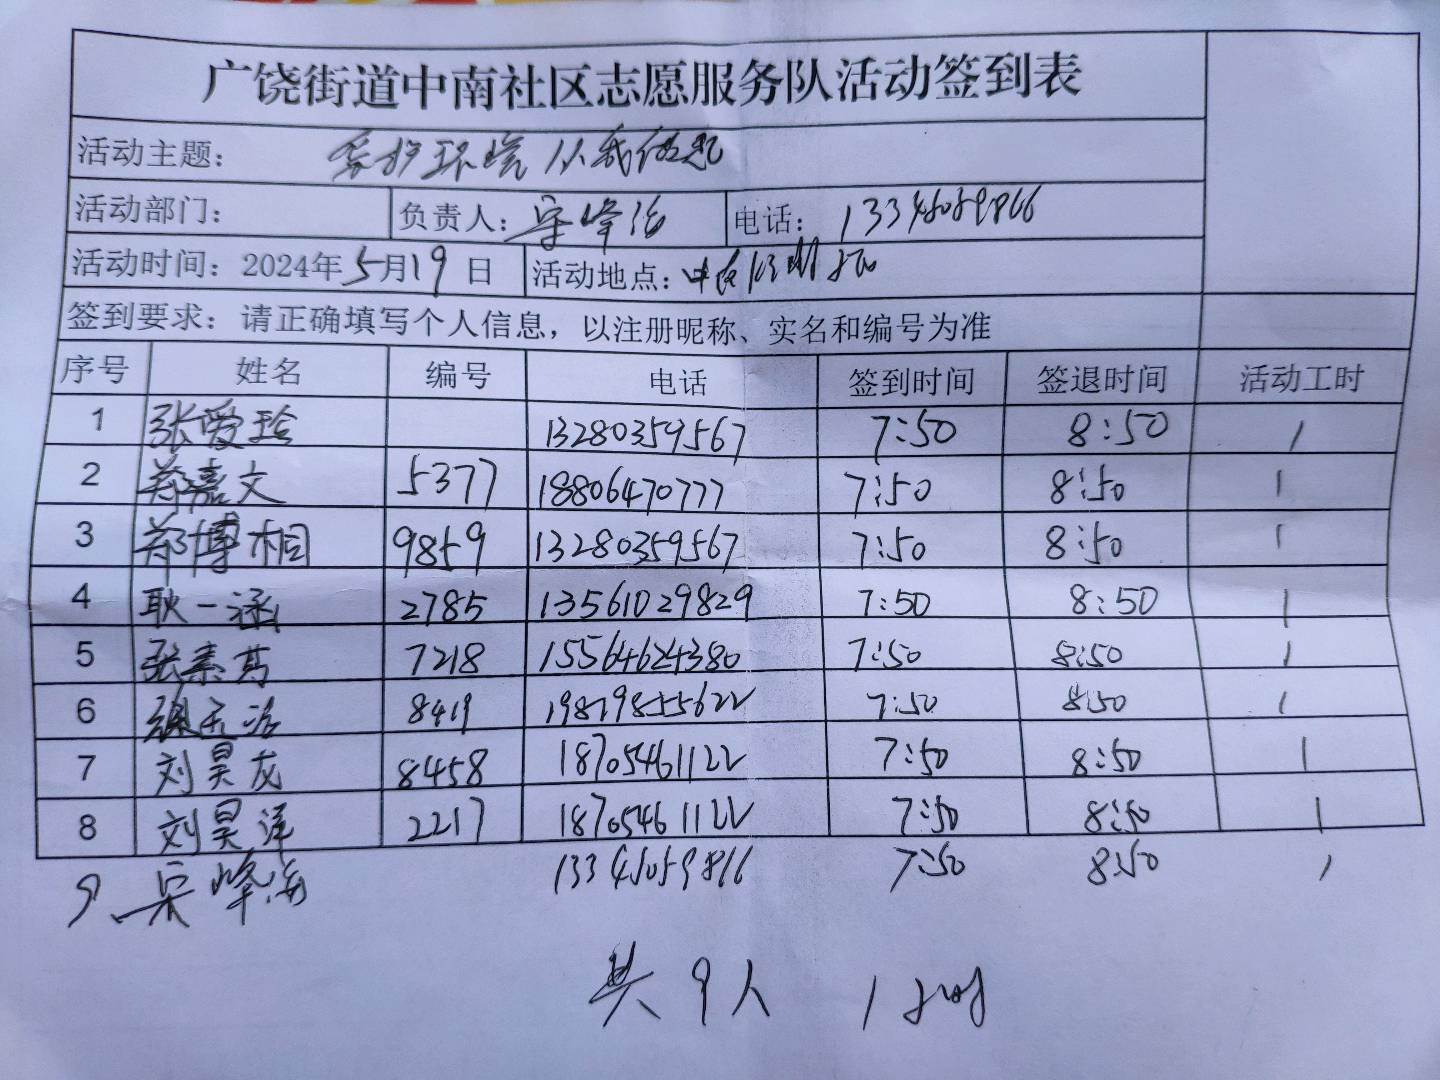 广饶街道中南社区志愿服务队活动签到表
活动主题： 爱护环境 从我做起
活动部门： 负责人：宋峰海 电话：13345059866
活动时间：2024年5月19日 活动地点：中南
签到要求：请正确填写个人信息，以注册昵称、实名和编号为准
序号 姓名 编号 电话 签到时间 签退时间 活动工时
1 张爱玲 13280359567 7:50 8:50 1
2 郑嘉文 5377 18806470777 7:50 8:50 1
3 郑博桐 9859 13280359567 7:50 8:50 1
4 耿一涵 2785 13561029829 7:50 8:50 1
5 张素芳 7218 15564624380 7:50 8:50 1
6 8419 19819855622 7:50 8:50 1
7 刘昊龙 8458 18705461122 7:50 8:50 1
8 刘昊泽 2217 18705461122 7:50 8:50 1
9、宋峰海 13345059866 7:50 8:50 1
共9人 1小时